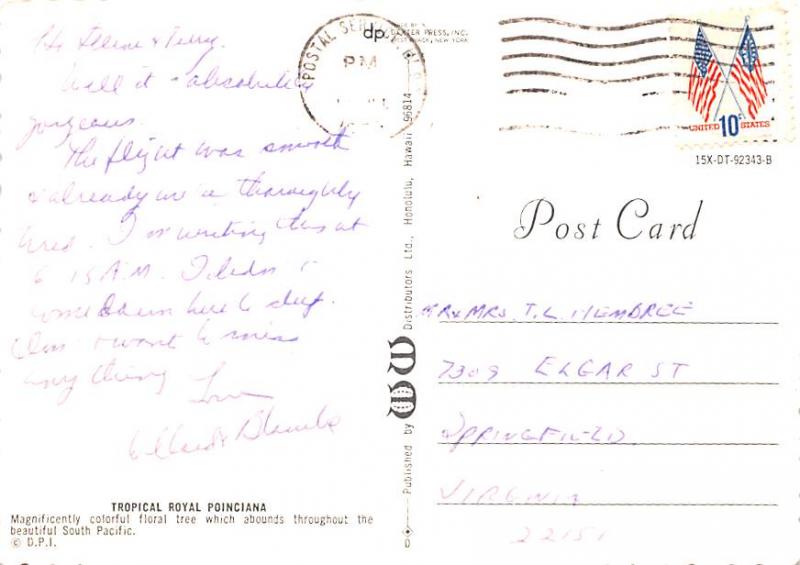 Hi Ilene & Terry.
Well it absolutely
gorgeous
The flight was smooth
& already we're thoroughly
tired. I'm writing this at
6 15 A.M. I didn't
come down here to sleep.
Don't want to miss
anything
Love
TROPICAL ROYAL POINCIANA
Magnificently colorful floral tree which abounds throughout the
beautiful South Pacific.
© D.P.I.
Published by WW Distributors Ltd., Honolulu, Hawaii 96814
POSTAL SERVICE
PM
dp
DEXTER PRESS, INC.
WEST NYACK, NEW YORK
UNITED 10c STATES
15X-DT-92343-B
Post Card
MR & MRS. T. L. HEMBREE
7309 ELGAR ST
SPRINGFIELD.
VIRGINIA
22151